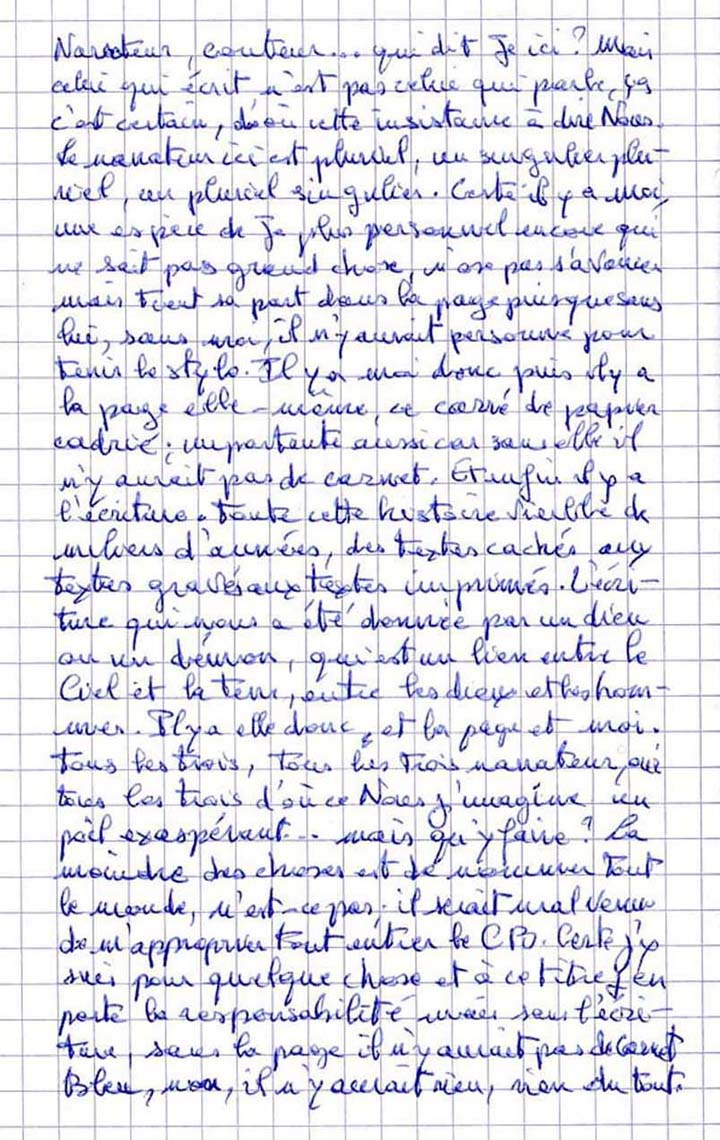 Narrateur, conteur... qui dit Je ici? Mais
celui qui écrit n'est pas celui qui parle, ça
c'est certain, d'où cette insistance à dire Nous.
Le narrateur ici est pluriel, un singulier plu-
riel, un pluriel singulier. Certe il y a moi,
une espèce de Je plus personnel encore qui
ne sait pas grand chose, n'ose pas s'avancer
mais tient sa part dans la page puisque sans
lui, sans moi, il n'y aurait personne pour
tenir le stylo. Il y a moi donc puis il y a
la page elle-même, ce carré de papier
cadrié; importante aussi car sans elle il
n'y aurait pas de carnet. Et enfin il y a
l'écriture. Toute cette histoire vieille de
milliers d'années, des textes cachés aux
textes gravés aux textes imprimés. L'écri-
ture qui nous a été donnée par un dieu
ou un démon, qui est un lien entre le
Ciel et la terre, entre les dieux et les hom-
mes. Il y a elle donc, et la page et moi.
Tous les trois, tous les trois narrateur, oui
tous les trois d'où ce Nous j'imagine un
poil exaspérant... mais qu'y faire? La
moindre des choses est de nommer tout
le monde, n'est-ce pas; il serait mal venu
de m'approprier tout entier le CPB. Certe j'y
suis pour quelque chose et à ce titre j'en
porte la responsabilité mais sans l'écri-
ture, sans la page il n'y aurait pas de Carnet
Bleu, non, il n'y aurait rien, rien du tout.